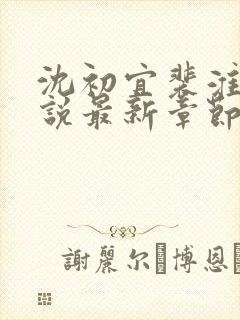 沈初宜裴淮
說最新章節
謝麗尔·博恩